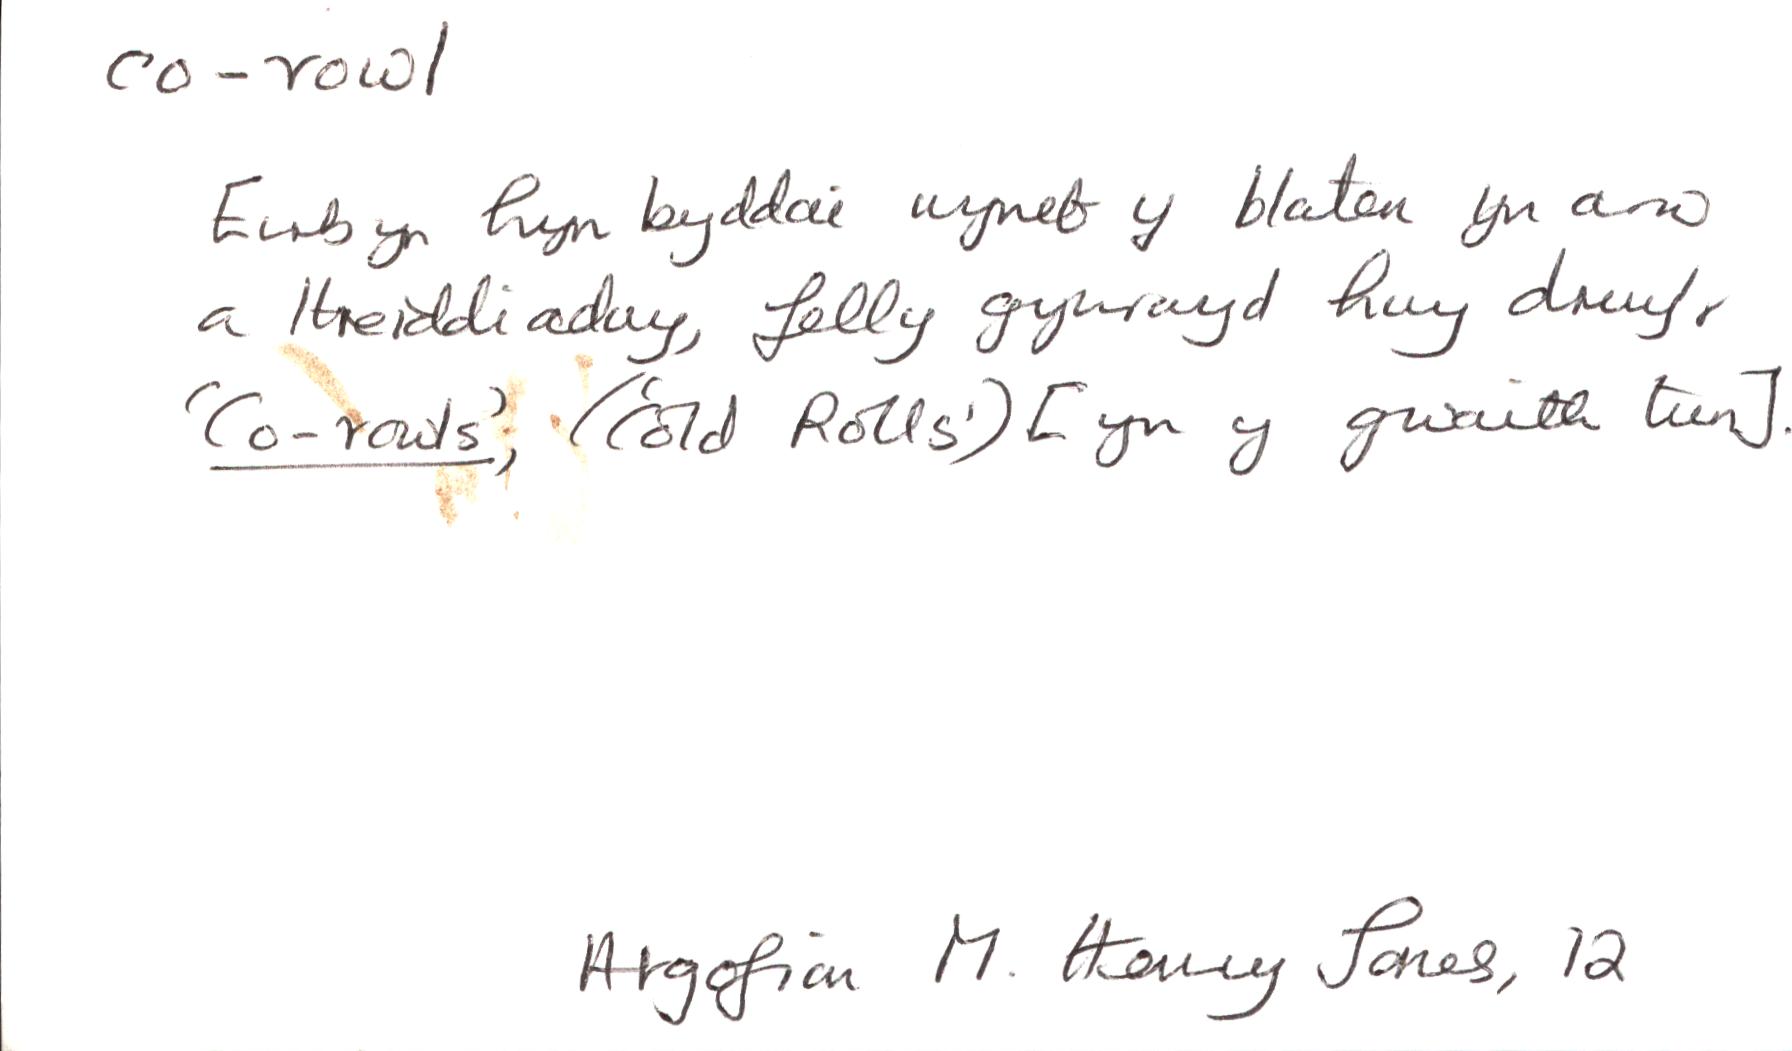 co-rowl
Erbyn hyn byddai wyneb y blaten yn arw
a threiddiadwy, felly gyrrwyd hwy drwy'r
'Co-rowls', ('Cold Rolls') [yn y gwaith tun].
Atgofion M. Henry Jones, 12